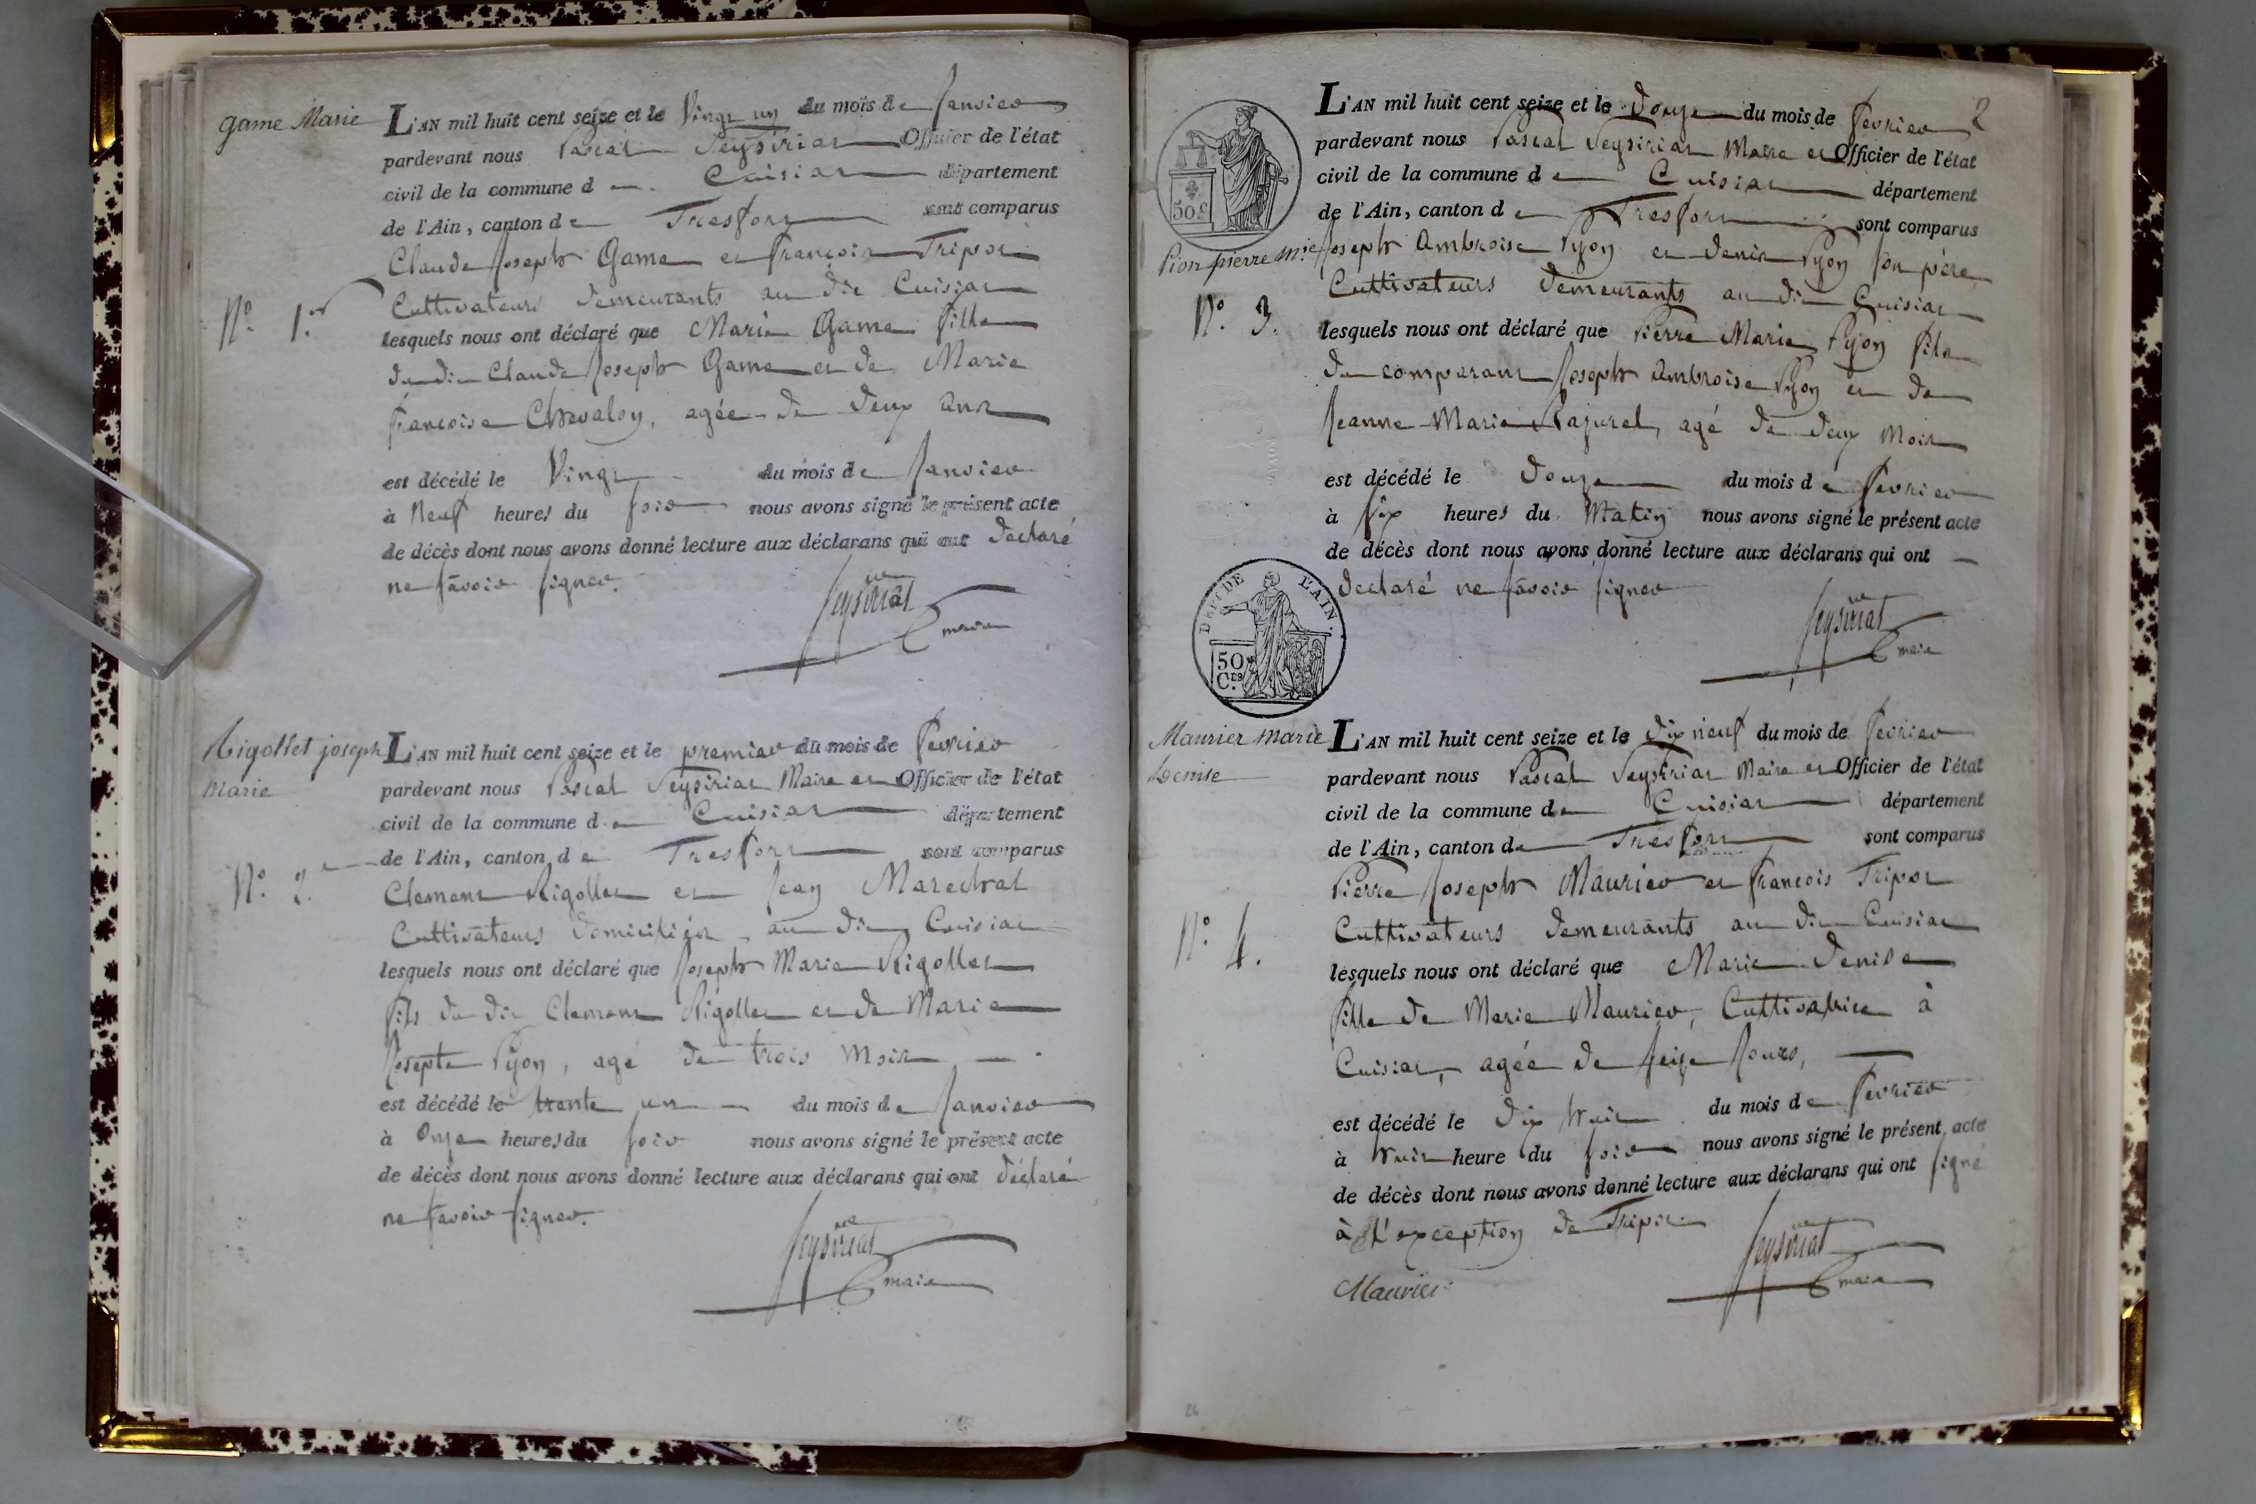 game Marie
L'AN mil huit cent seize et le Vingt un du mois de Janvier
pardevant nous Pascal Peysiriat Officier de l'état
civil de la commune de Cuisiat département
de l'Ain, canton de Tresfort sont comparus
Claude Joseph Game et françois Tripot
Cultivateurs demeurants au dit Cuisiat
N.º 1.er
lesquels nous ont déclaré que Marie Game fille
du dit Claude Joseph Game et de Marie
françoise Chevalon, agée de deux ans
est décédé le Vingt du mois de Janvier
à Neuf heures du soir nous avons signé le présent acte
de décès dont nous avons donné lecture aux déclarans qui ont déclaré
ne savoir signer.
Peysiriat
maire
Rigollet joseph
Marie
L'AN mil huit cent seize et le premier du mois de fevrier
pardevant nous Pascal Peysiriat Maire et Officier de l'état
civil de la commune de Cuisiat département
de l'Ain, canton de Tresfort sont comparus
N.º 2.
Clement Rigollet et Jean Marechal
Cultivateurs domiciliés au dit Cuisiat
lesquels nous ont déclaré que Joseph Marie Rigollet
fils du dit Clement Rigollet et de Marie
Josepte Pyon, agé de trois mois
est décédé le trente un du mois de Janvier
à Onze heures du soir nous avons signé le présent acte
de décès dont nous avons donné lecture aux déclarans qui ont déclaré
ne savoir signer.
Peysiriat
maire
2
50 c
L'AN mil huit cent seize et le douze du mois de fevrier
pardevant nous Pascal Peysiriat Maire et Officier de l'état
civil de la commune de Cuisiat département
de l'Ain, canton de Tresfort sont comparus
Pion pierre m.ie
Joseph Ambroise Pyon et denis Pyon son père
Cultivateurs demeurants au dit Cuisiat
N.º 3.
lesquels nous ont déclaré que Pierre Marie Pyon fils
du comparant Joseph Ambroise Pyon et de
Jeanne Marie Pajurel, agé de deux mois
est décédé le douze du mois de fevrier
à six heures du Matin nous avons signé le présent acte
de décès dont nous avons donné lecture aux déclarans qui ont
déclaré ne savoir signer
DEPT DE L'AIN.
50
C.ES
Peysiriat
maire
Maurier marie
Denise
L'AN mil huit cent seize et le dix neuf du mois de fevrier
pardevant nous Pascal Peysiriat Maire et Officier de l'état
civil de la commune de Cuisiat département
de l'Ain, canton de Tresfort sont comparus
Pierre Joseph Maurier et françois Tripot
Cultivateurs demeurants au dit Cuisiat
N.º 4.
lesquels nous ont déclaré que Marie denise
fille de Marie Maurier, Cultivatrice à
Cuisiat, agée de seize Jours,
est décédé le dix huit du mois de fevrier
à huit heure du soir nous avons signé le présent acte
de décès dont nous avons donné lecture aux déclarans qui ont signé
à l'exception de Tripot
Peysiriat
maire
Maurier
26